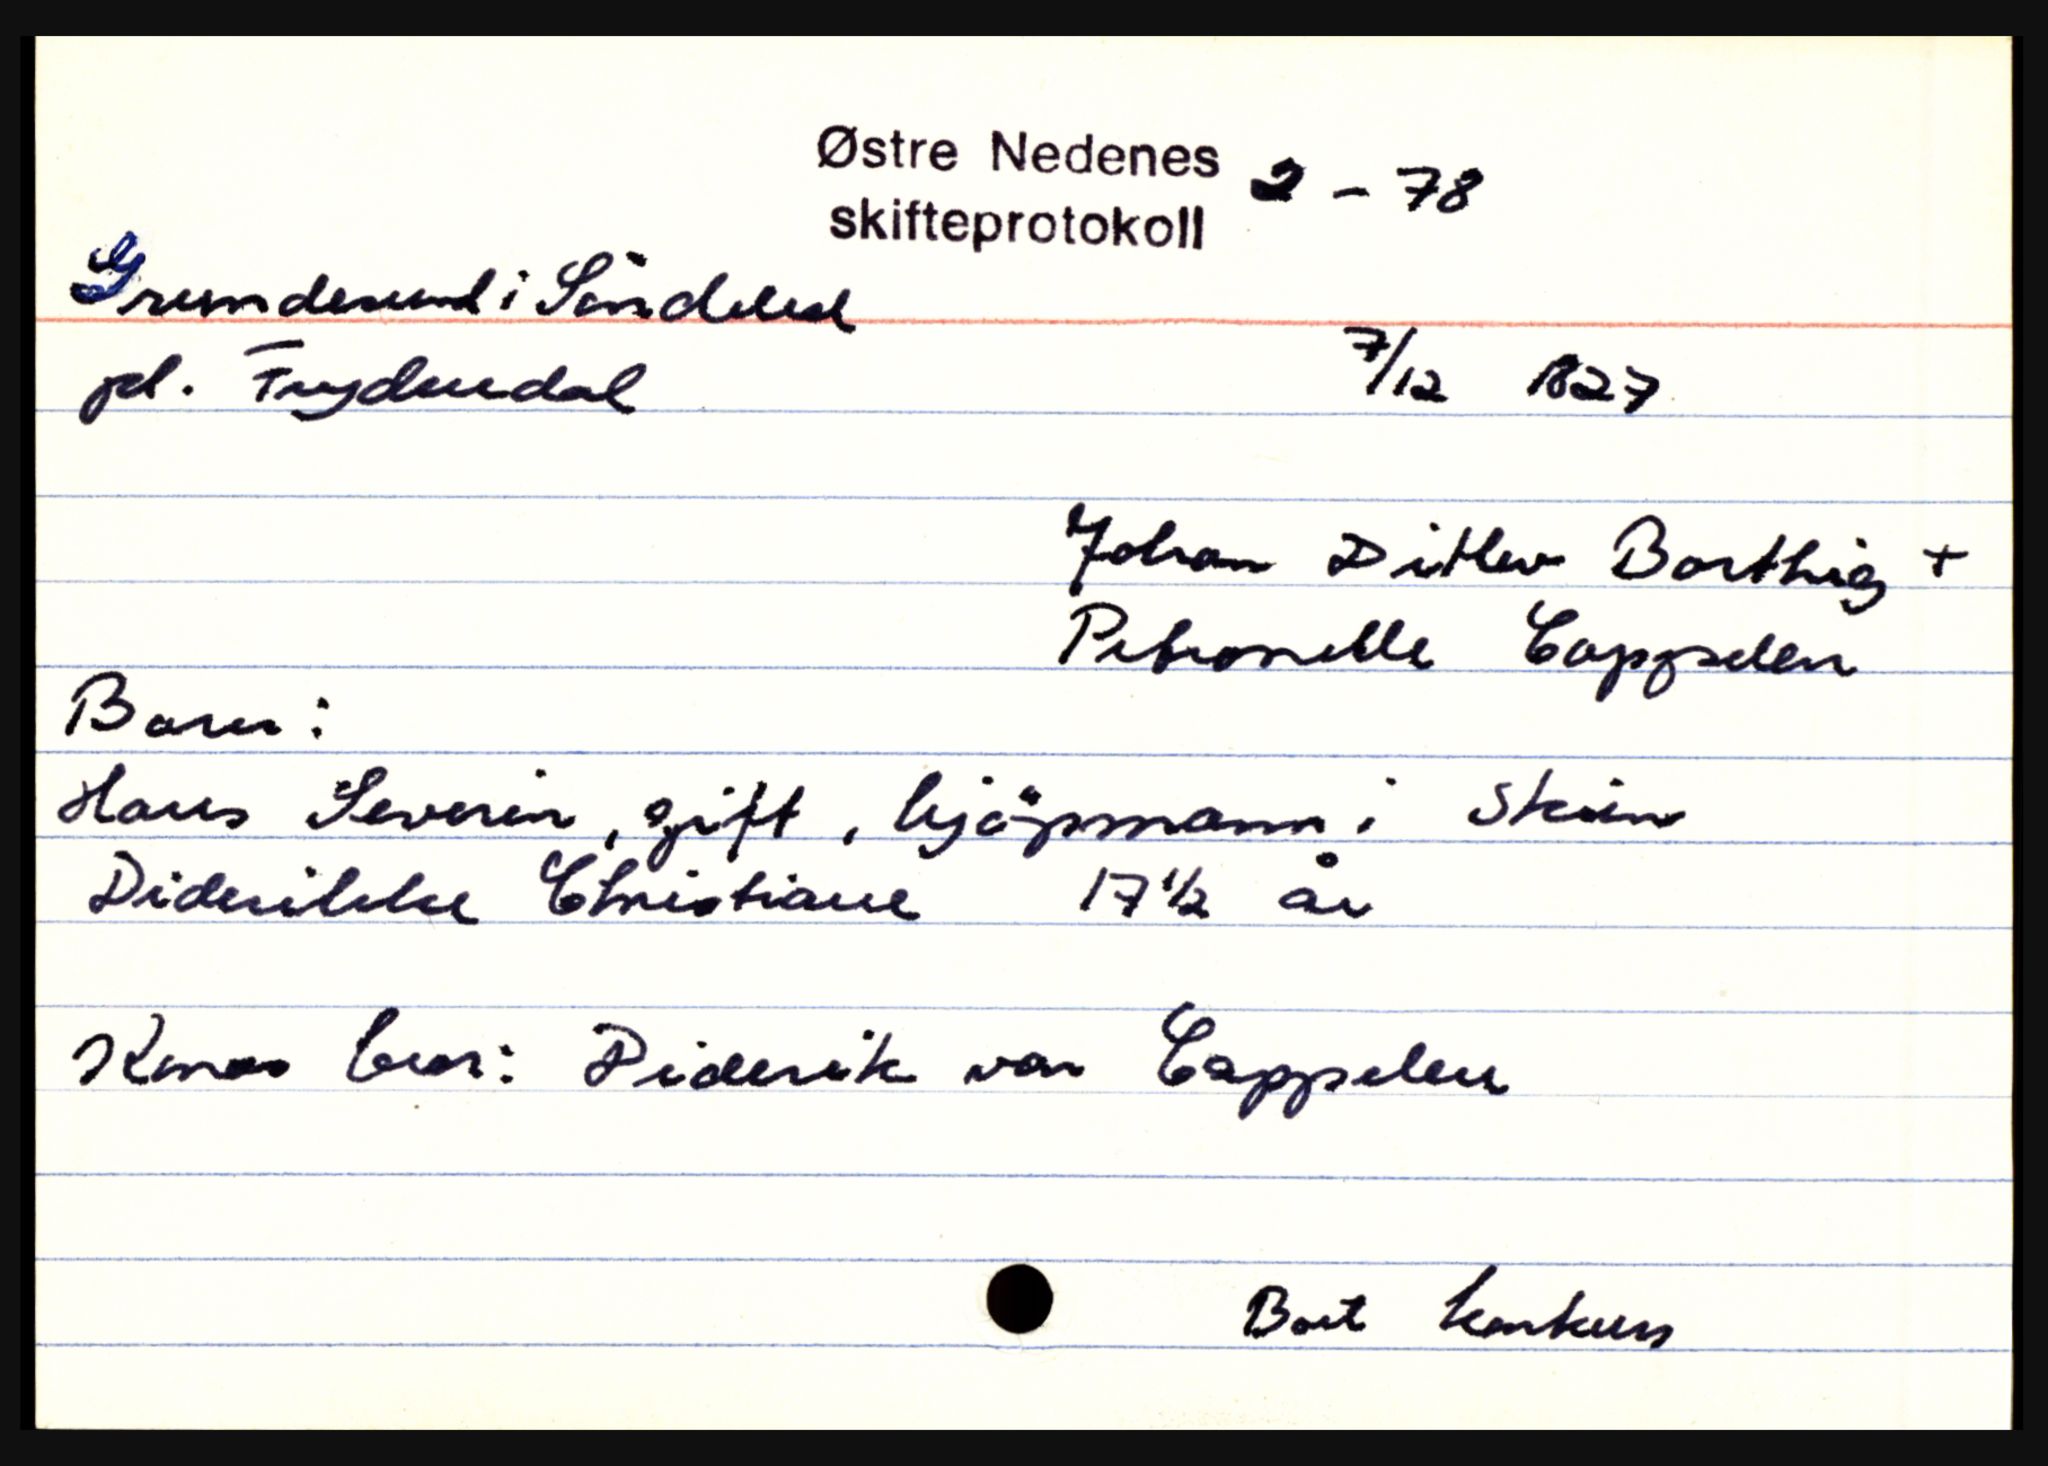 Østre Nedenes 2 - 78
skifteprotokoll
Grundesund i Söndeled
pl. Frydendal 7/12 1827
Johan Ditlev Borthig +
Petronelle Cappelen
Barn:
Hans Severin, gift, kjöpmann i Skien
Diderikke Christiane 17 1/2 år
Konas bror: Diderik von Cappelen
Bort konkurs